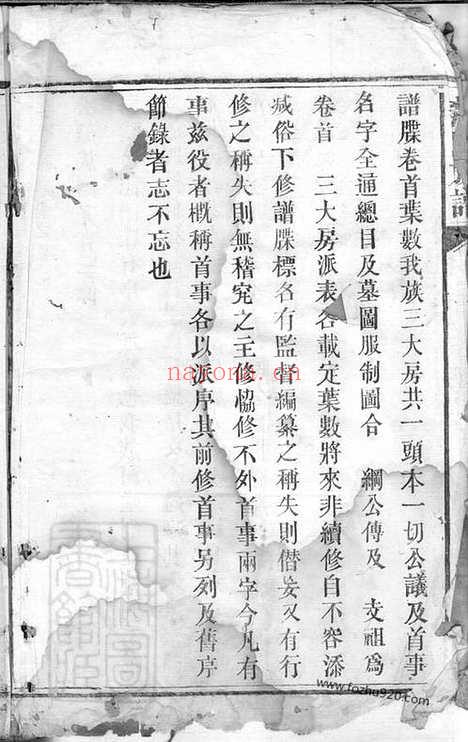 譜牒卷首葉數我族三大房共一頭本一切公議及首事
名字全通總目及墓圖服制圖合 綱公傳及 支祖爲
卷首 三大房派表各載定葉數將來非續修自不容添
减俗下修譜牒標名有監督編纂之称失則僣妄又有行
修之称失則無稽究之主修恊修不外首事兩字今凡有
事兹役者概称首事各以派序其前修首事另列及舊序
節錄者志不忘也
nayona.cn
www.fozhu920.com